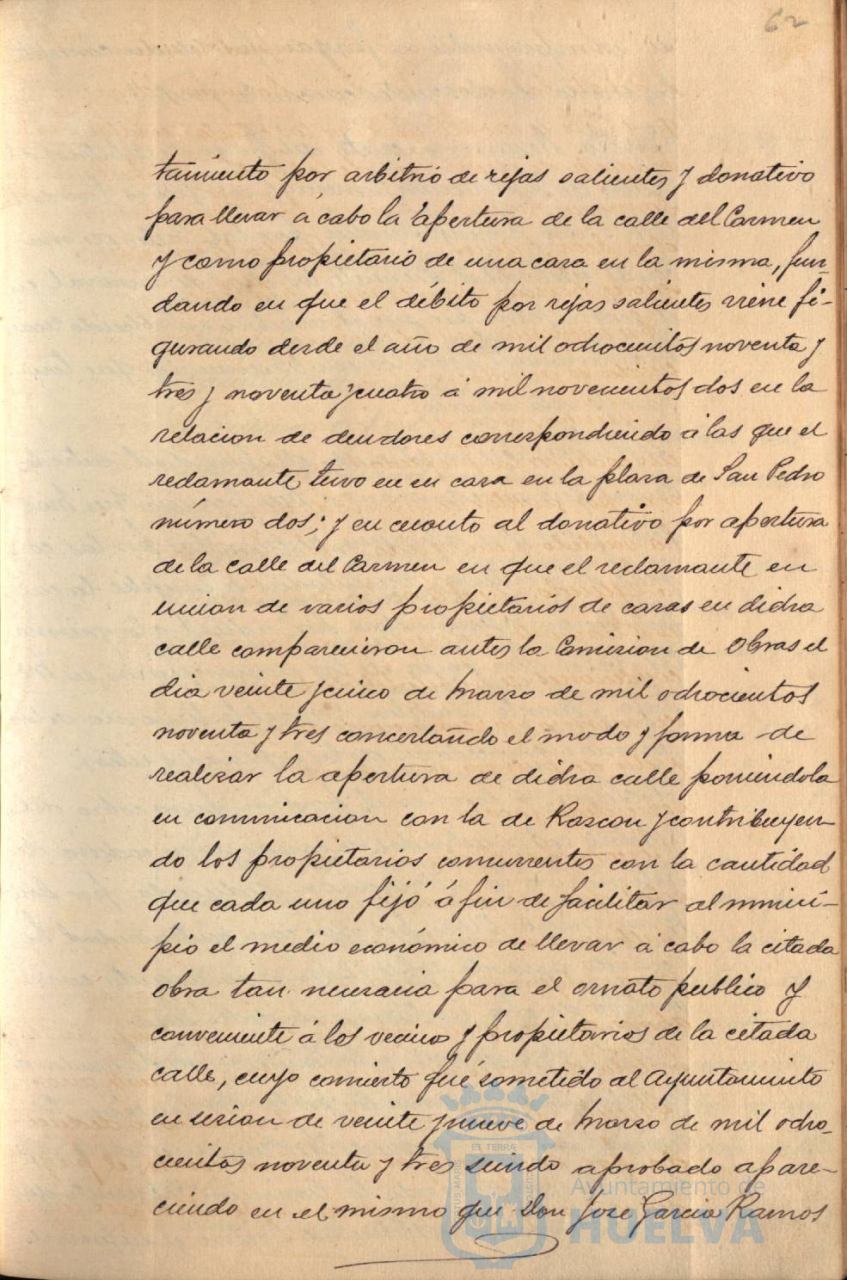 62
tamiento por arbitrio de rejas salientes y donativo
para llevar á cabo la apertura de la calle del Carmen
y como propietario de una casa en la misma, fun-
dando en que el débito por rejas salientes viene fi-
gurando desde el año de mil ochocientos noventa y
tres y noventa y cuatro á mil novecientos dos en la
relacion de deudores correspondiendo á las que el
reclamante tuvo en su casa en la plaza de San Pedro
número dos; y en cuanto al donativo por apertura
de la calle del Carmen en que el reclamante en
union de varios propietarios de casas en dicha
calle comparecieron antes la Comision de Obras el
dia veinte y cinco de Marzo de mil ochocientos
noventa y tres concertando el modo y forma de
realizar la apertura de dicha calle poniéndola
en comunicacion con la de Rascon y contribuyen-
do los propietarios concurrentes con la cantidad
que cada uno fijó á fin de facilitar al munici-
pio el medio económico de llevar á cabo la citada
obra tan necesaria para el ornato publico y
conveniente á los vecinos y propietarios de la citada
calle, cuyo concierto fué sometido al Ayuntamiento
en sesion de veinte y nueve de Marzo de mil ocho-
cientos noventa y tres siendo aprobado apare-
ciendo en el mismo que Don José Garcia Ramos
Ayuntamiento de
HUELVA